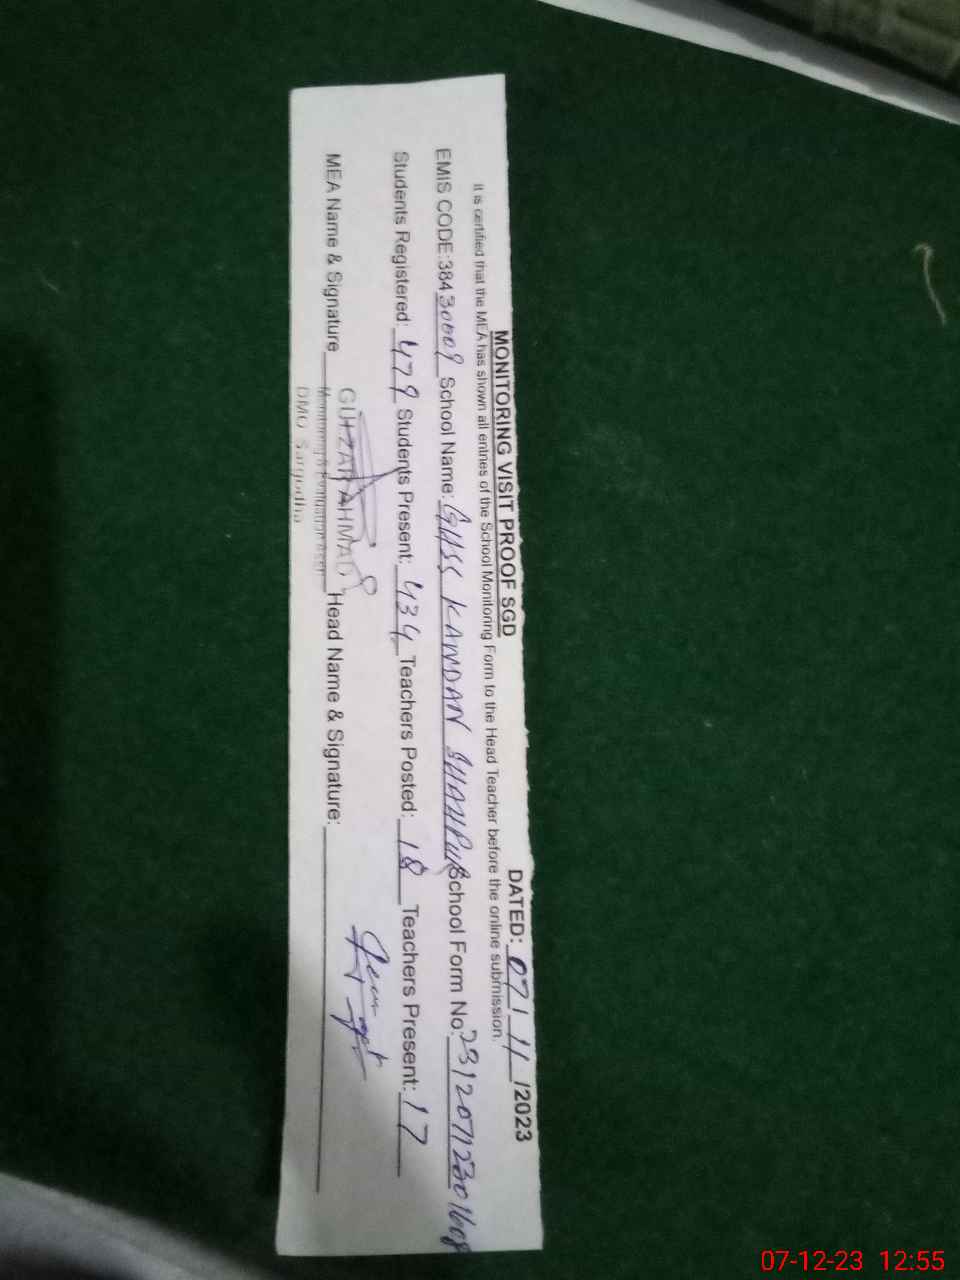 MONITORING VISIT PROOF SGD
DATED: 07/11/2023
It is certified that the MEA has shown all entries of the School Monitoring Form to the Head Teacher before the online submission.
EMIS CODE:38430009 School Name: GHSS KANDAN SHAHPUR School Form No: 231207123001608
Students Registered: 479 Students Present: 434 Teachers Posted: 18 Teachers Present: 17
MEA Name & Signature Head Name & Signature:
GULZAR AHMAD
Monitoring & Evaluation Asstt
DMO Sargodha
07-12-23 12:55